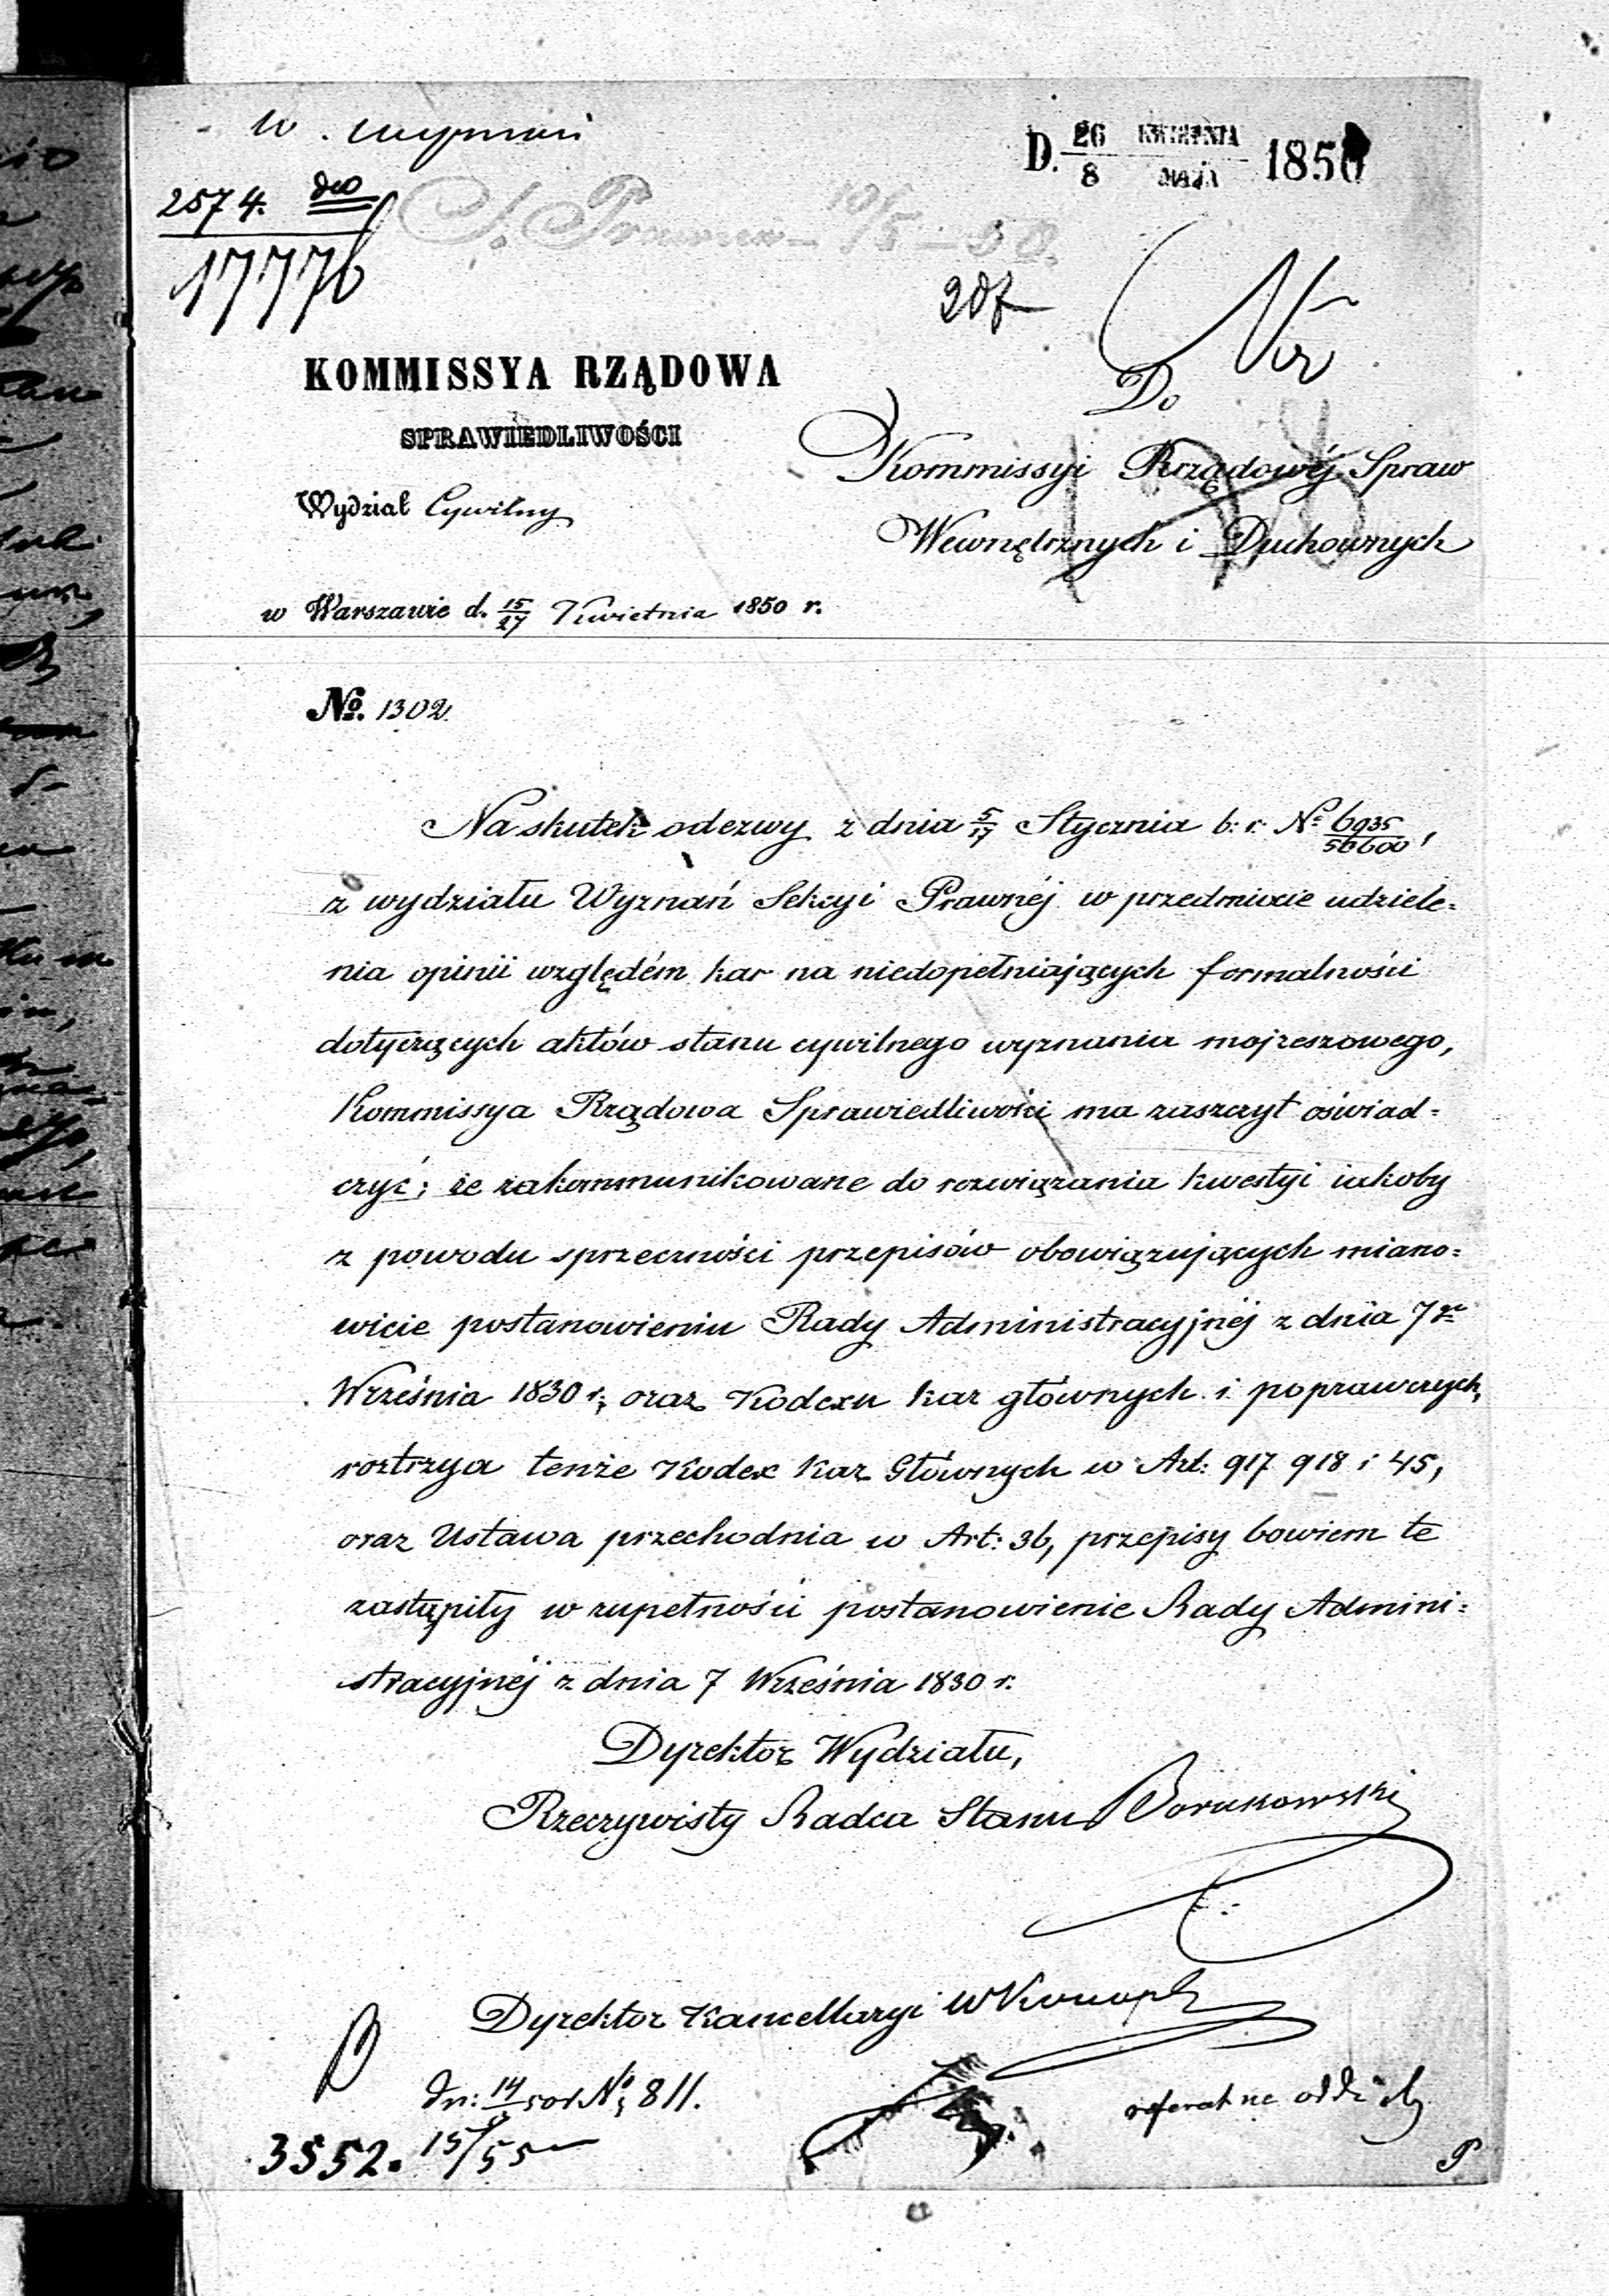 W. wyznań
D. 26/8 KWIETNIA/MAJA 1850
2574.
17776
S. Prawna – 10/5 – 50.
207
KOMMISSYA RZĄDOWA
SPRAWIEDLIWOŚCI
Do
Kommissyi Rządowéj Spraw
Wewnętrznych i Duchownych
Wydział Cywilny
w Warszawie d. 15/27 Kwietnia 1850 r.
No. 1302.
Na skutek odezwy z dnia 5/17 Stycznia b: r: No 6935/56600,
z wydziału Wyznań Sekcyi Prawnéj w przedmiocie udziele=
nia opinii względém kar na niedopełniających formalności
dotyczących aktów stanu cywilnego wyznania mojżeszowego,
Kommissya Rządowa Sprawiedliwości ma zaszczyt oświad=
czyć; że zakommunikowane do rozwiązania kwestyi iakoby
z powodu sprzeczności przepisów obowiązujących miano=
wicie postanowieniu Rady Administracyjnéj z dnia 7go
Września 1830 r; oraz Kodexu kar głównych i poprawczych,
roztrzya tenże Kodex kar Głównych w Art: 917 918 i 45,
oraz Ustawa przechodnia w Art: 36, przepisy bowiem te
zastąpiły w zupełności postanowienie Rady Admini=
stracyjnéj z dnia 7 Września 1830 r.
Dyrektor Wydziału,
Rzeczywisty Radca Stanu
Dyrektor Kancellaryi
dn: 14 No 811.
3552. 15/5 5
referat ne